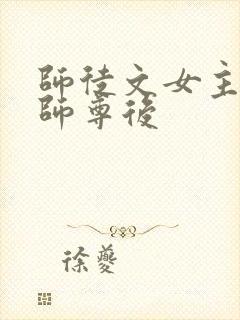 師徒文女主
師尊後
徐夔